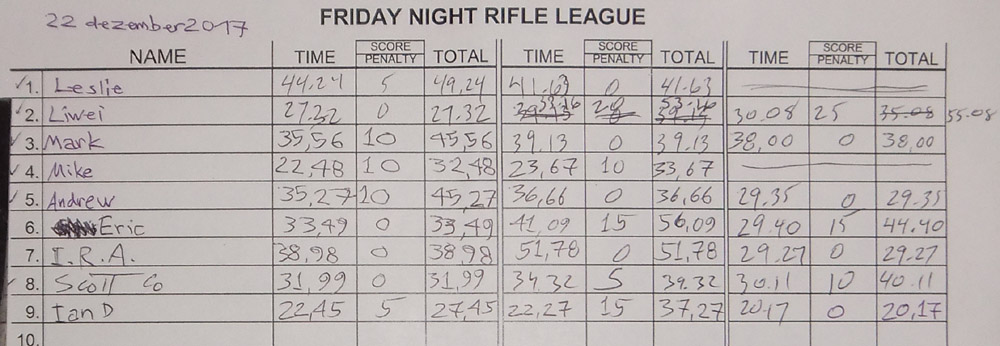 22 dezember2017
FRIDAY NIGHT RIFLE LEAGUE
NAME TIME SCORE PENALTY TOTAL TIME SCORE PENALTY TOTAL TIME SCORE PENALTY TOTAL
1. Leslie 44.24 5 49,24 41.63 0 41.63
2. Liwei 27.32 0 27.32 53.16 53.16 30.08 25 35.08 55.08
3. Mark 35,56 10 45,56 39.13 0 39.13 38,00 0 38,00
4. Mike 22,48 10 32,48 23,67 10 33,67
5. Andrew 35,27 10 45,27 36,66 0 36,66 29.35 0 29.35
6. Eric 33,49 0 33,49 41,09 15 56,09 29.40 15 44.40
7. I.R.A. 38,98 0 38,98 51,78 0 51,78 29.27 0 29.27
8. Scott Co 31,99 0 31,99 34.32 5 39.32 30.11 10 40.11
9. Ian D 22,45 5 27,45 22,27 15 37,27 20.17 0 20,17
10.